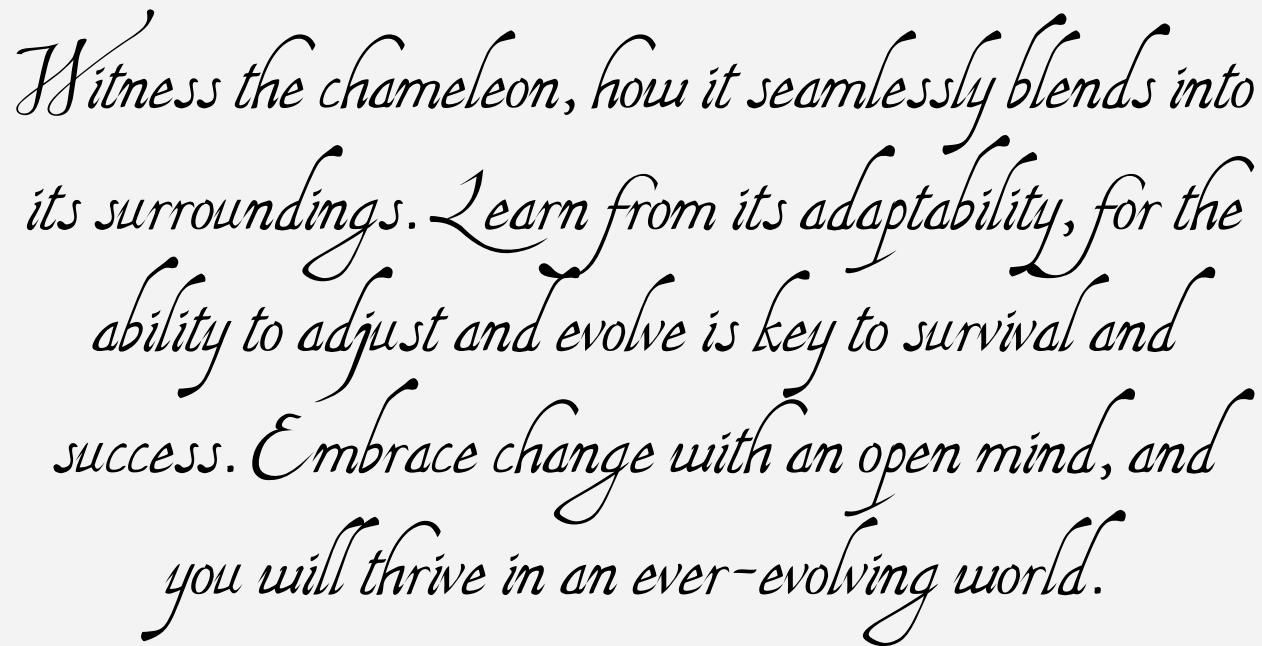 Witness the chameleon, how it seamlessly blends into
its surroundings. Learn from its adaptability, for the
ability to adjust and evolve is key to survival and
success. Embrace change with an open mind, and
you will thrive in an ever-evolving world.